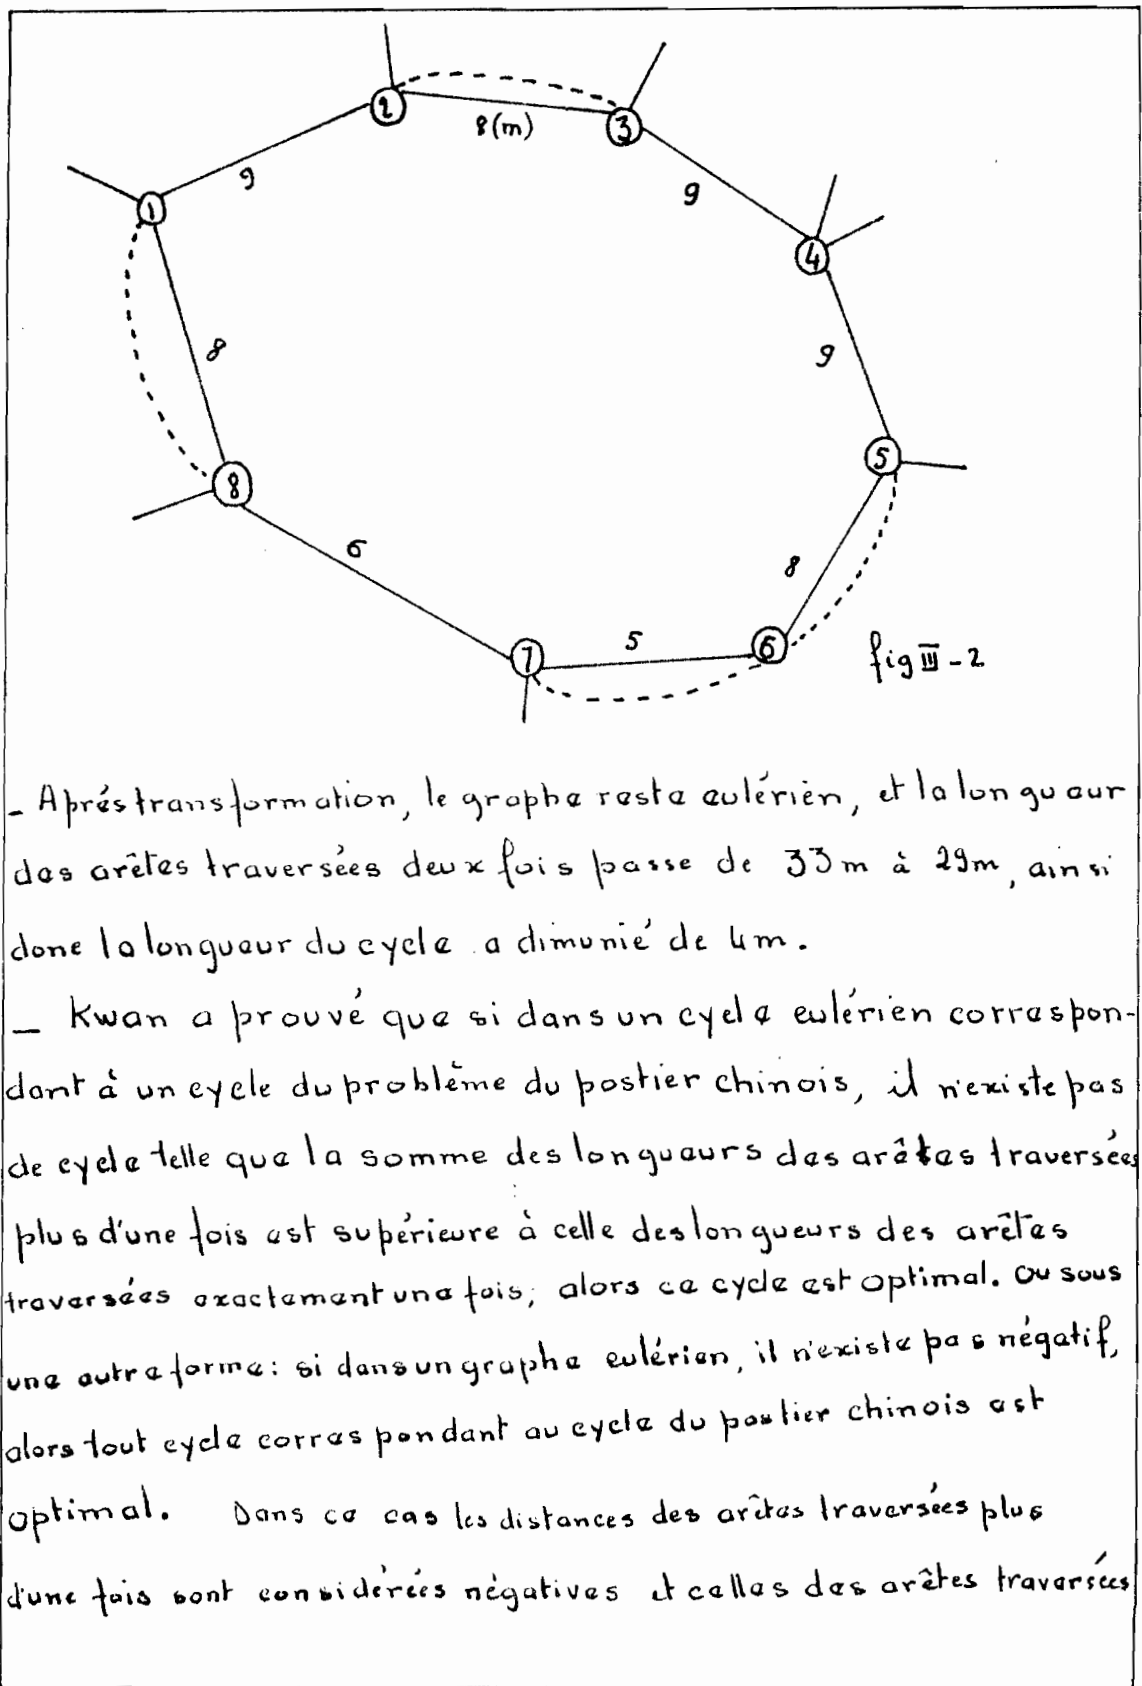 2
8(m)
3
9
9
1
4
8
9
5
8
6
8
5
7
6
fig III - 2
- Aprés transformation, le graphe reste eulérien, et la longueur
des arêtes traversées deux fois passe de 33m à 29m, ainsi
donc la longueur du cycle a dimunié de 4m.
- Kwan a prouvé que si dans un cycle eulérien correspon-
dant à un cycle du problème du postier chinois, il n'existe pas
de cycle telle que la somme des longueurs des arêtes traversées
plus d'une fois est supérieure à celle des longueurs des arêtes
traversées exactement une fois; alors ce cycle est optimal. Ou sous
une autre forme: si dans un graphe eulérien, il n'existe pas négatif,
alors tout cycle correspondant au cycle du postier chinois est
optimal. Dans ce cas les distances des arêtes traversées plus
d'une fois sont considérées négatives et celles des arêtes traversées